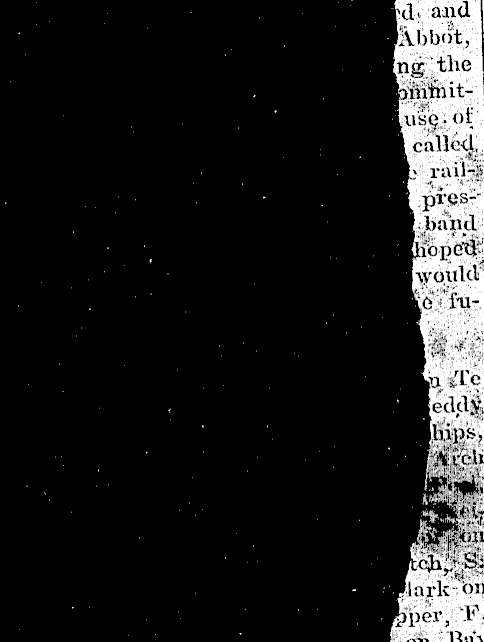 d. and
Abbot,
ng the
ommit-
use of
called
rail-
pres-
band
hoped
would
e fu-
n Te
eddy
hips,
Arch
on
tch, S
lark on
pper, F
on Bay